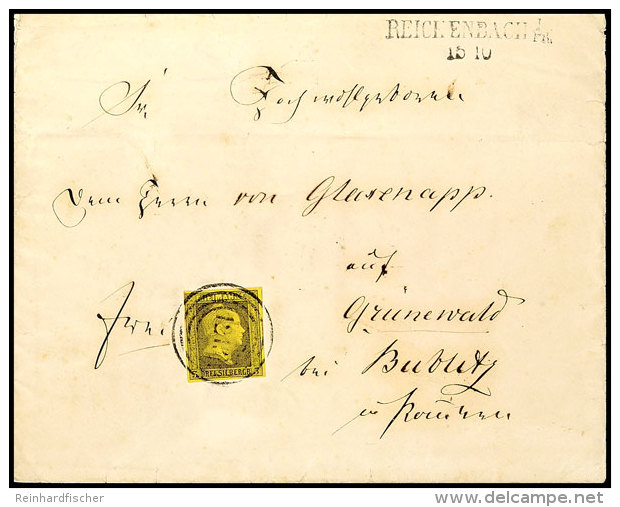 REICHENBACH I/PR.
15 10
Sr. Hochwohlgeboren
dem Herrn von Glasenapp.
auf
Frei Grünewald
bei Bublitz
in Pommern
FREIMARKE
3 SILBERGR. 3
Reinhardfischer
delcampe.net